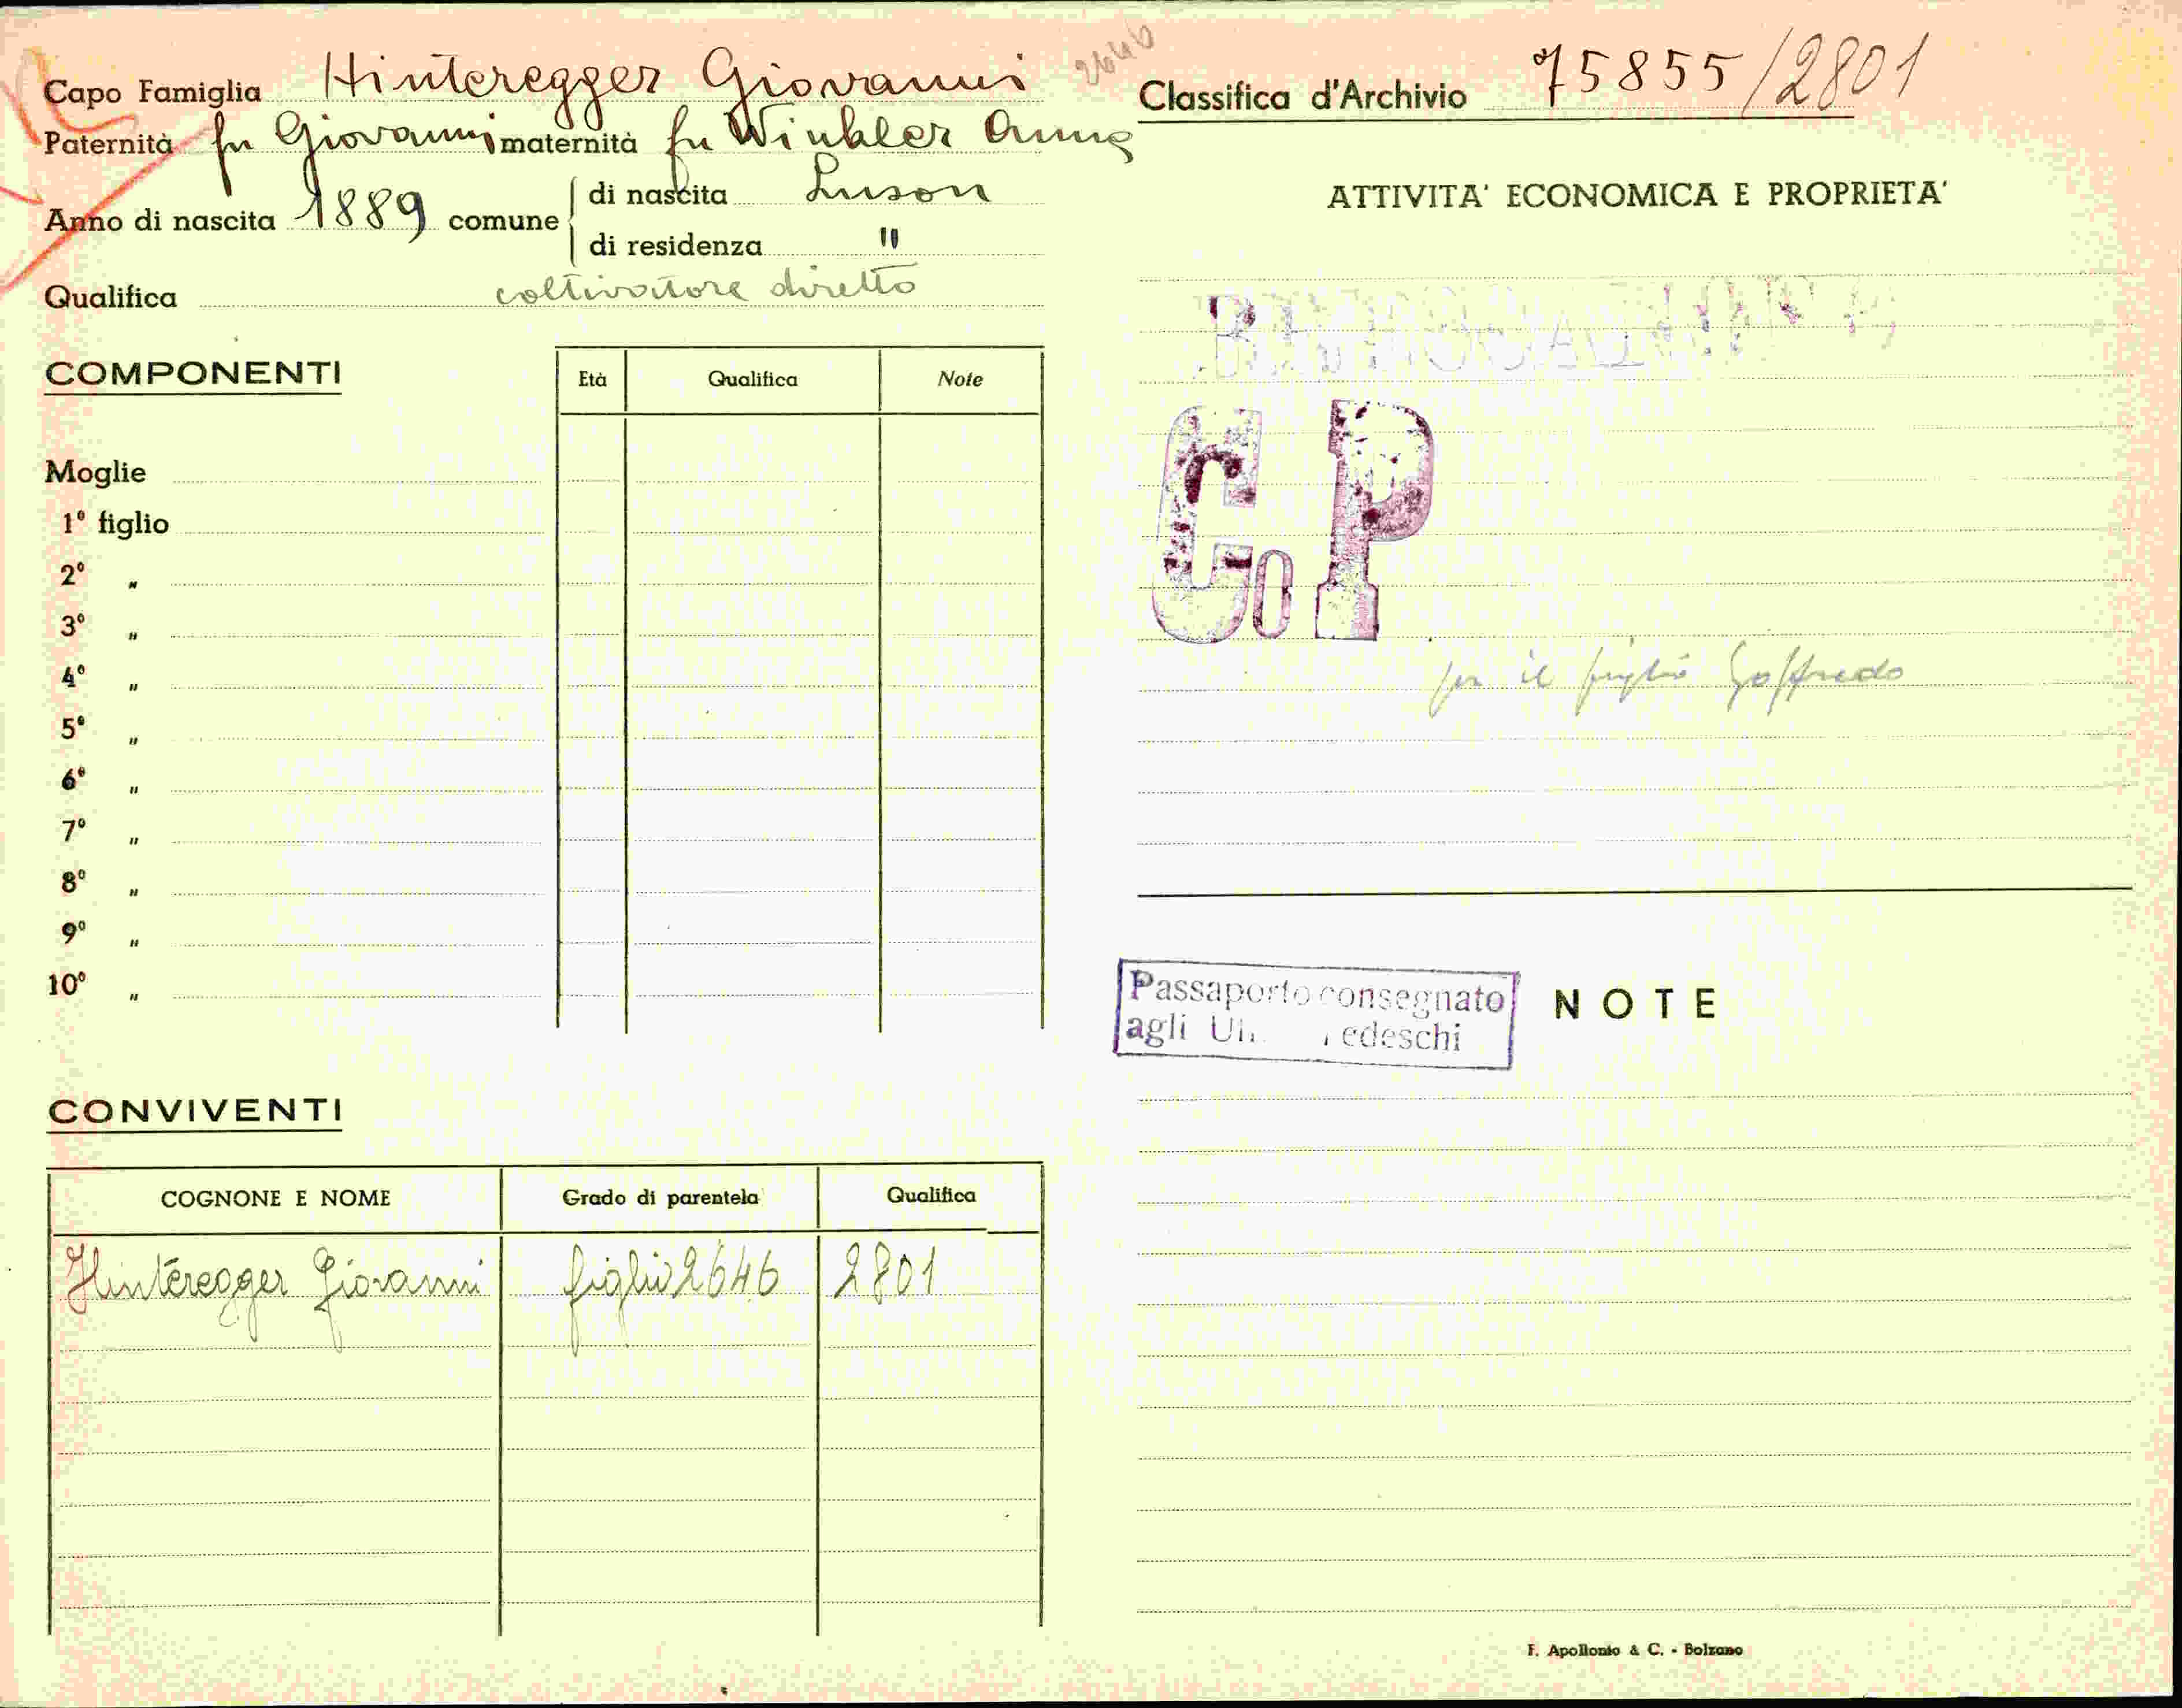 Capo Famiglia Hinteregger Giovanni 2646
Paternità fu Giovanni maternità fu Winkler Anna
Anno di nascita 1889 comune di nascita Luson
di residenza "
Qualifica coltivatore diretto
COMPONENTI
Età Qualifica Note
Moglie
1º figlio
2º "
3º "
4º "
5º "
6º "
7º "
8º "
9º "
10º "
CONVIVENTI
COGNONE E NOME Grado di parentela Qualifica
Hinteregger Giovanni figlio 2646 2801
Classifica d'Archivio 75855/2801
ATTIVITA' ECONOMICA E PROPRIETA'
Co P
per il figlio Goffredo
Passaporto consegnato
agli edeschi
NOTE
F. Apollonio & C. - Bolzano